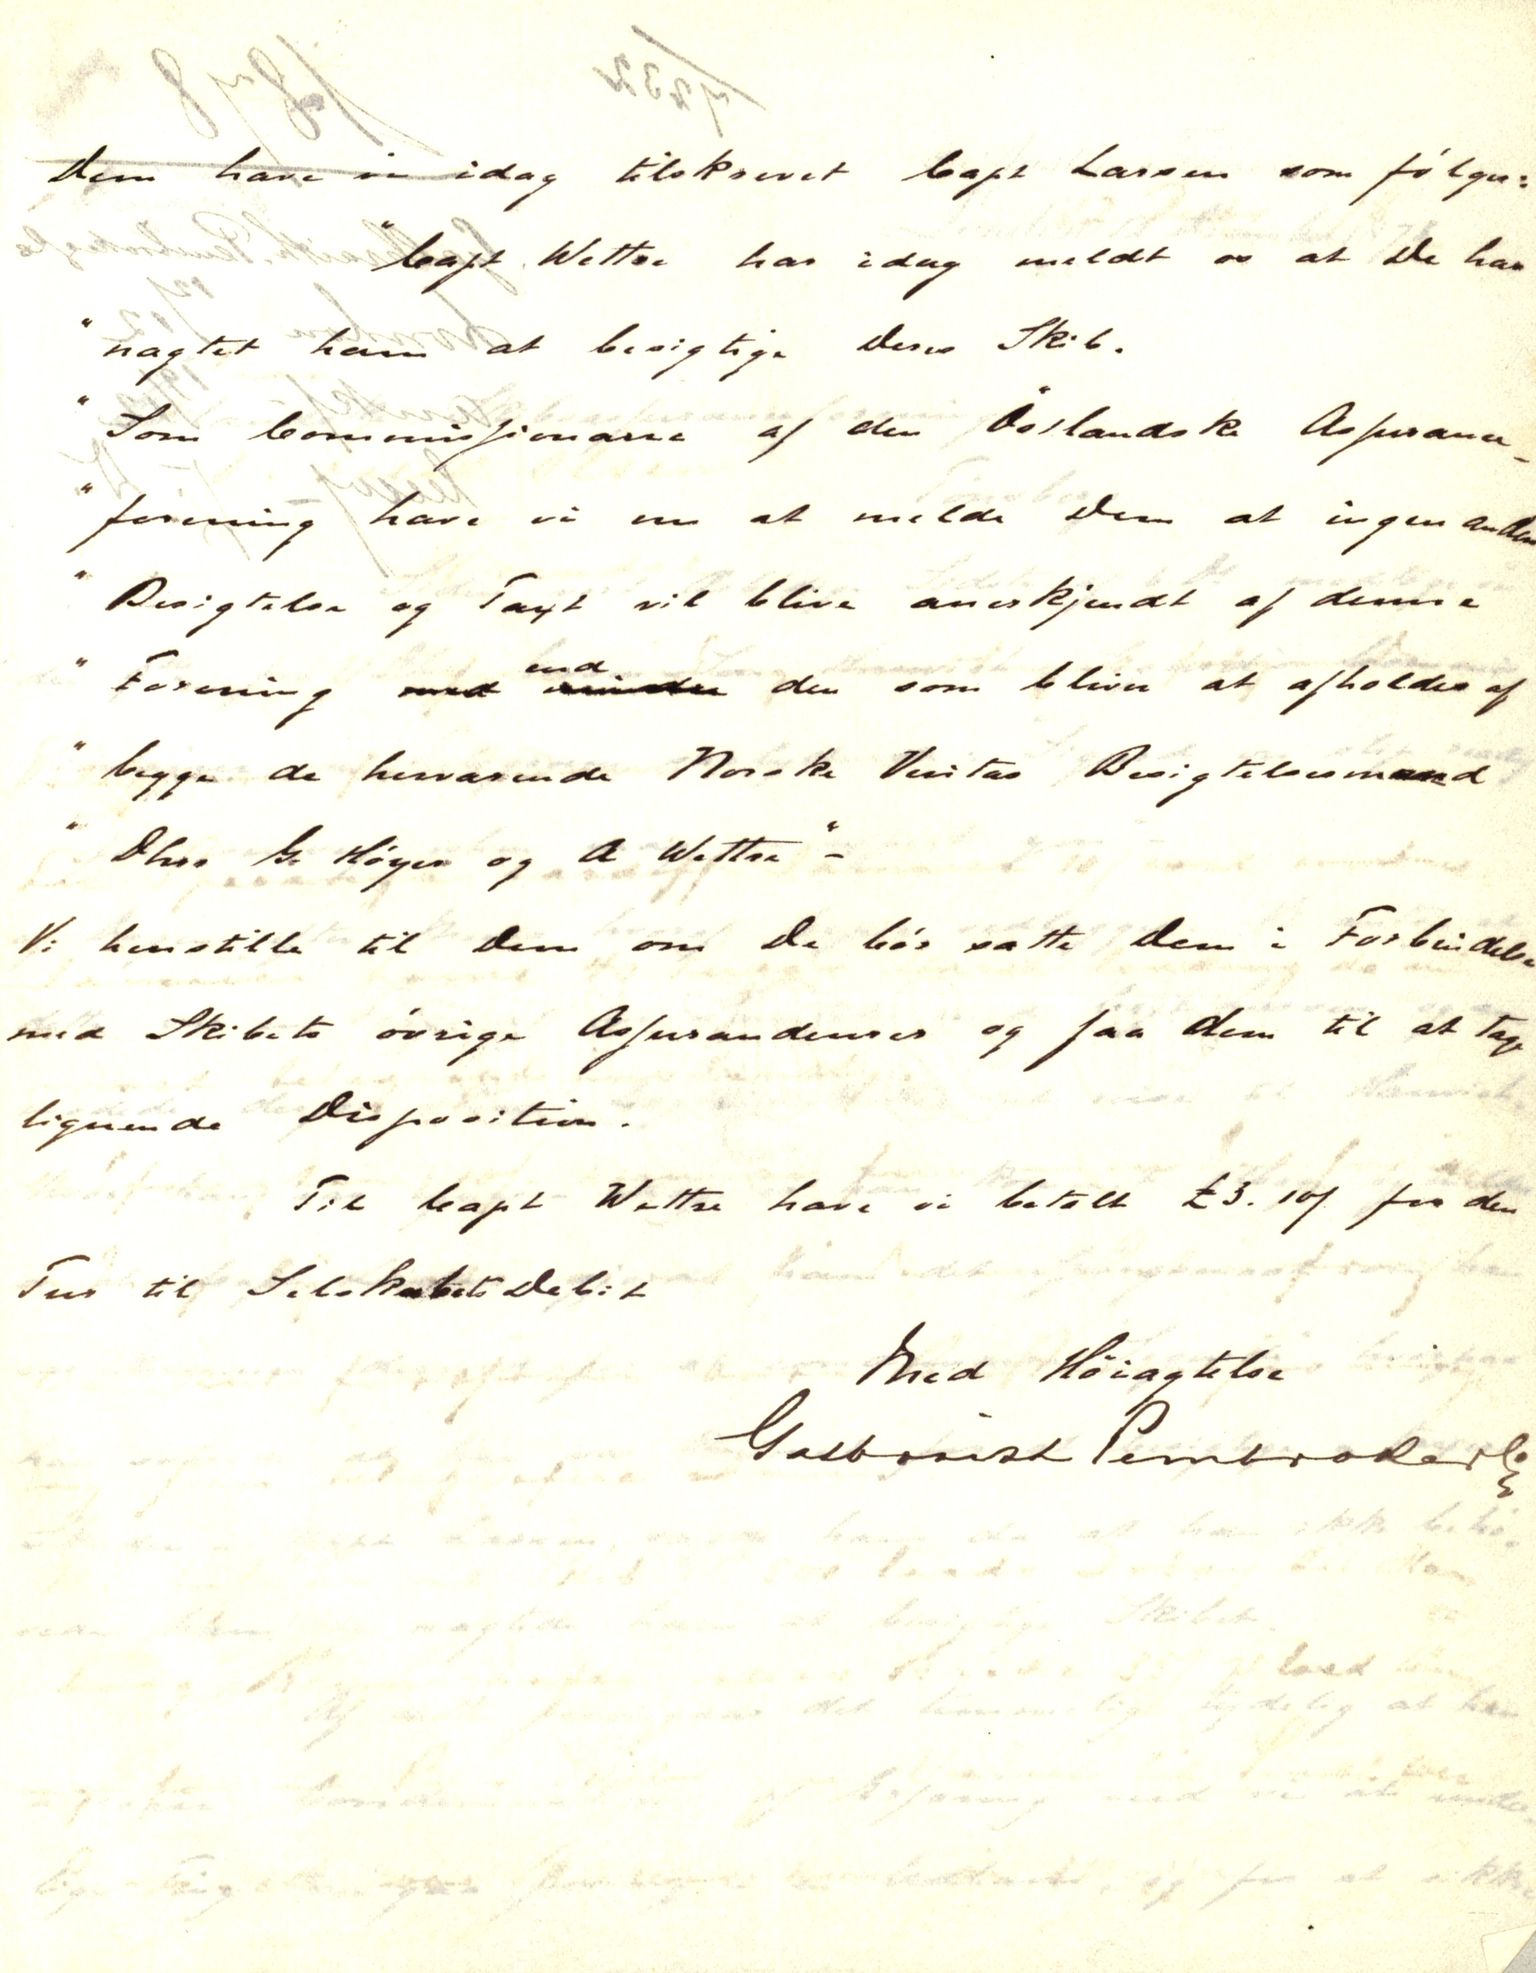 Dem have vi idag tilskrevet Capt Larsen som følger:
"Capt Wettre har idag meldt os at De har
" nægtet ham at besigtige Deres Skib.
" Som Commissionærer af den Östlandske Assurance-
" forening have vi nu at melde Dem at ingen anden
" Besigtelse og Taxt vil blive anerkjendt af denne
" Forening end den som bliver at afholdes af
" begge de herværende Norske Veritas Besigtelsesmænd
" Dhrr G. Høyer og A Wettre" -
Vi henstille til Dem om De bör sætte Dem i Forbindelse
med Skibets övrige Assurandeurer og faa dem til at tage
lignende Disposition.
Til Capt Wettre have vi betalt £3. 10/ for den
Tur til Selskabets Debit
Med Höiagtelse
Galbraith Pembroke & Co